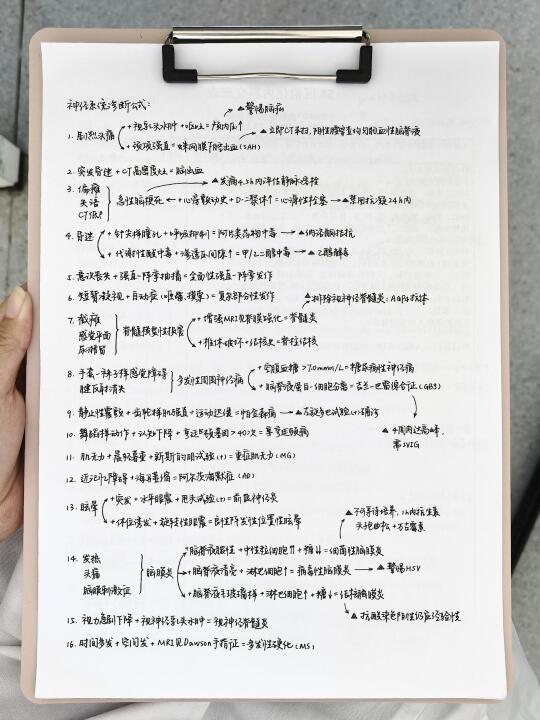 神经系统诊断公式:
▲警惕脑疝
1. 剧烈头痛
+ 视乳头水肿 + 呕吐 = 颅内压↑
+ 颈项强直 = 蛛网膜下腔出血(SAH) → ▲立即CT平扫,阴性腰穿查均匀血性脑脊液
2. 突发昏迷 + CT高密度灶 = 脑出血
3. 偏瘫 失语 CT低
急性脑梗死 + 心房颤动史 + D-二聚体↑ = 心源性栓塞 → ▲禁用抗凝24h内
▲发病4.5h内评估静脉溶栓
4. 昏迷
+ 针尖样瞳孔 + 呼吸抑制 = 阿片类药物中毒 → ▲纳洛酮拮抗
+ 代谢性酸中毒 + 渗透压间隙↑ = 甲/乙二醇中毒 → ▲乙醇解毒
5. 意识丧失 + 强直-阵挛抽搐 = 全面性强直-阵挛发作
6. 短暂凝视 + 自动症(咂嘴、摸索) = 复杂部分性发作
▲排除视神经脊髓炎:AQP4抗体
7. 截瘫 感觉平面 尿潴留
脊髓横贯性损害
+ 增强MRI见脊髓强化 = 脊髓炎
+ 椎体破坏 + 结核史 = 脊柱结核
8. 手套-袜子样感觉障碍 腱反射消失
多发性周围神经病
+ 空腹血糖 >7.0mmol/L = 糖尿病性神经病
+ 脑脊液蛋白-细胞分离 = 吉兰-巴雷综合征(GBS)
▲4周内达高峰,需IVIG
9. 静止性震颤 + 齿轮样肌强直 + 运动迟缓 = 帕金森病 → ▲左旋多巴试验(+)确诊
10. 舞蹈样动作 + 认知下降 + 亨廷顿基因>40次 = 亨廷顿病
11. 肌无力 + 晨轻暮重 + 新斯的明试验(+) = 重症肌无力(MG)
12. 近记忆障碍 + 海马萎缩 = 阿尔茨海默症(AD)
13. 眩晕
+ 突发 + 水平眼震 + 甩头试验(+) = 前庭神经炎
+ 体位诱发 + 旋转性眼震 = 良性阵发性位置性眩晕
▲不可等待培养,1h内抗生素 头孢曲松 + 万古霉素
14. 发热 头痛 脑膜刺激征
脑膜炎
脑脊液脓性 + 中性粒细胞↑↑ + 糖↓↓ = 细菌性脑膜炎
+ 脑脊液清亮 + 淋巴细胞↑ = 病毒性脑膜炎 → ▲警惕HSV
+ 脑脊液毛玻璃样 + 淋巴细胞↑ + 糖↓ = 结核性脑膜炎
▲抗酸染色阴性仍应经验性
15. 视力急剧下降 + 视神经乳头水肿 = 视神经脊髓炎
16. 时间多发 + 空间多发 + MRI见Dawson手指征 = 多发性硬化(MS)